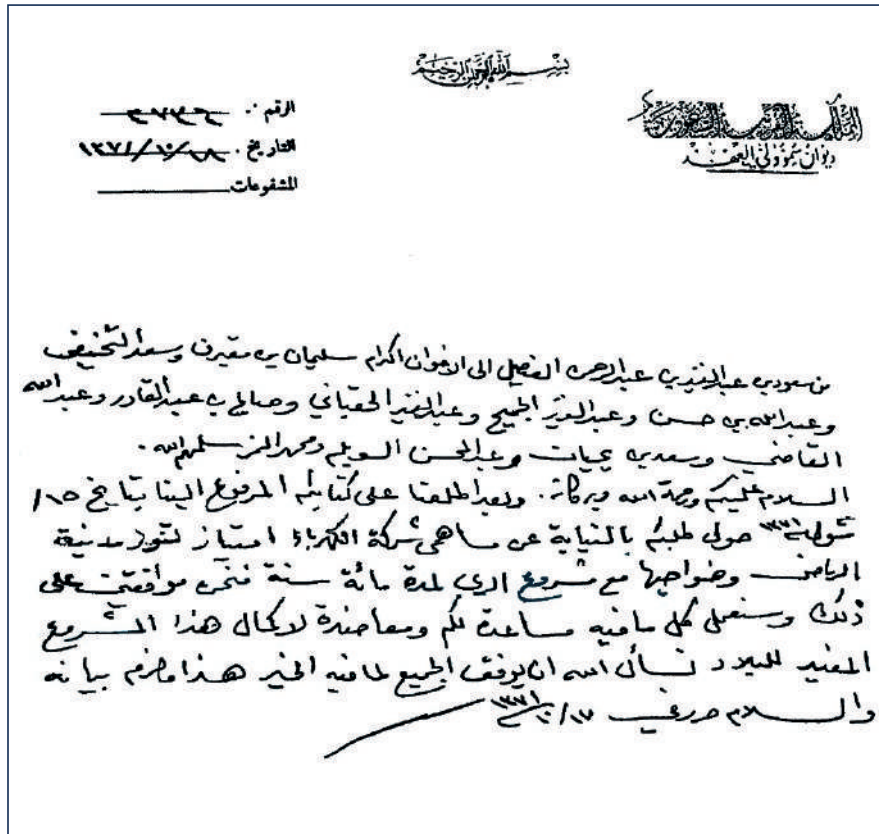 بسم الله الرحمن الرحيم
المملكة العربية السعودية
ديوان سمو ولي العهد
الرقم
التاريخ ١٣٧١/١٠/١٨
المشفوعات
من سعود بن عبدالعزيز بن عبدالرحمن الفيصل الى الاخوان الكرام سليمان بن مقيرن وسعد
وعبدالله بن حسن وعبدالعزيز الجميح وعبدالعزيز الحقباني وصالح بن عبدالقادر وعبدالله
القاضي وسعد بن يحيان وعبدالمحسن السويلم ومحمد سلمهم الله.
السلام عليكم ورحمة الله وبركاته. وبعد اطلعنا على كتابكم المرفوع الينا بتاريخ ١٥/
شوال ١٣٧١ حول طلبكم بالنيابة عن مساهمي شركة الكهرباء امتياز لتنوير مدينة
الرياض وضواحيها مع مشروع الري لمدة مائة سنة فنحن موافقين على
ذلك وسنعمل كل مافيه مساعدة لكم ومعاضدة لاكمال هذا المشروع
المفيد للبلاد نسأل الله ان يوفق الجميع لما فيه الخير هذا مالزم بيانه
والسلام ١٣٧١/١٠/١٧